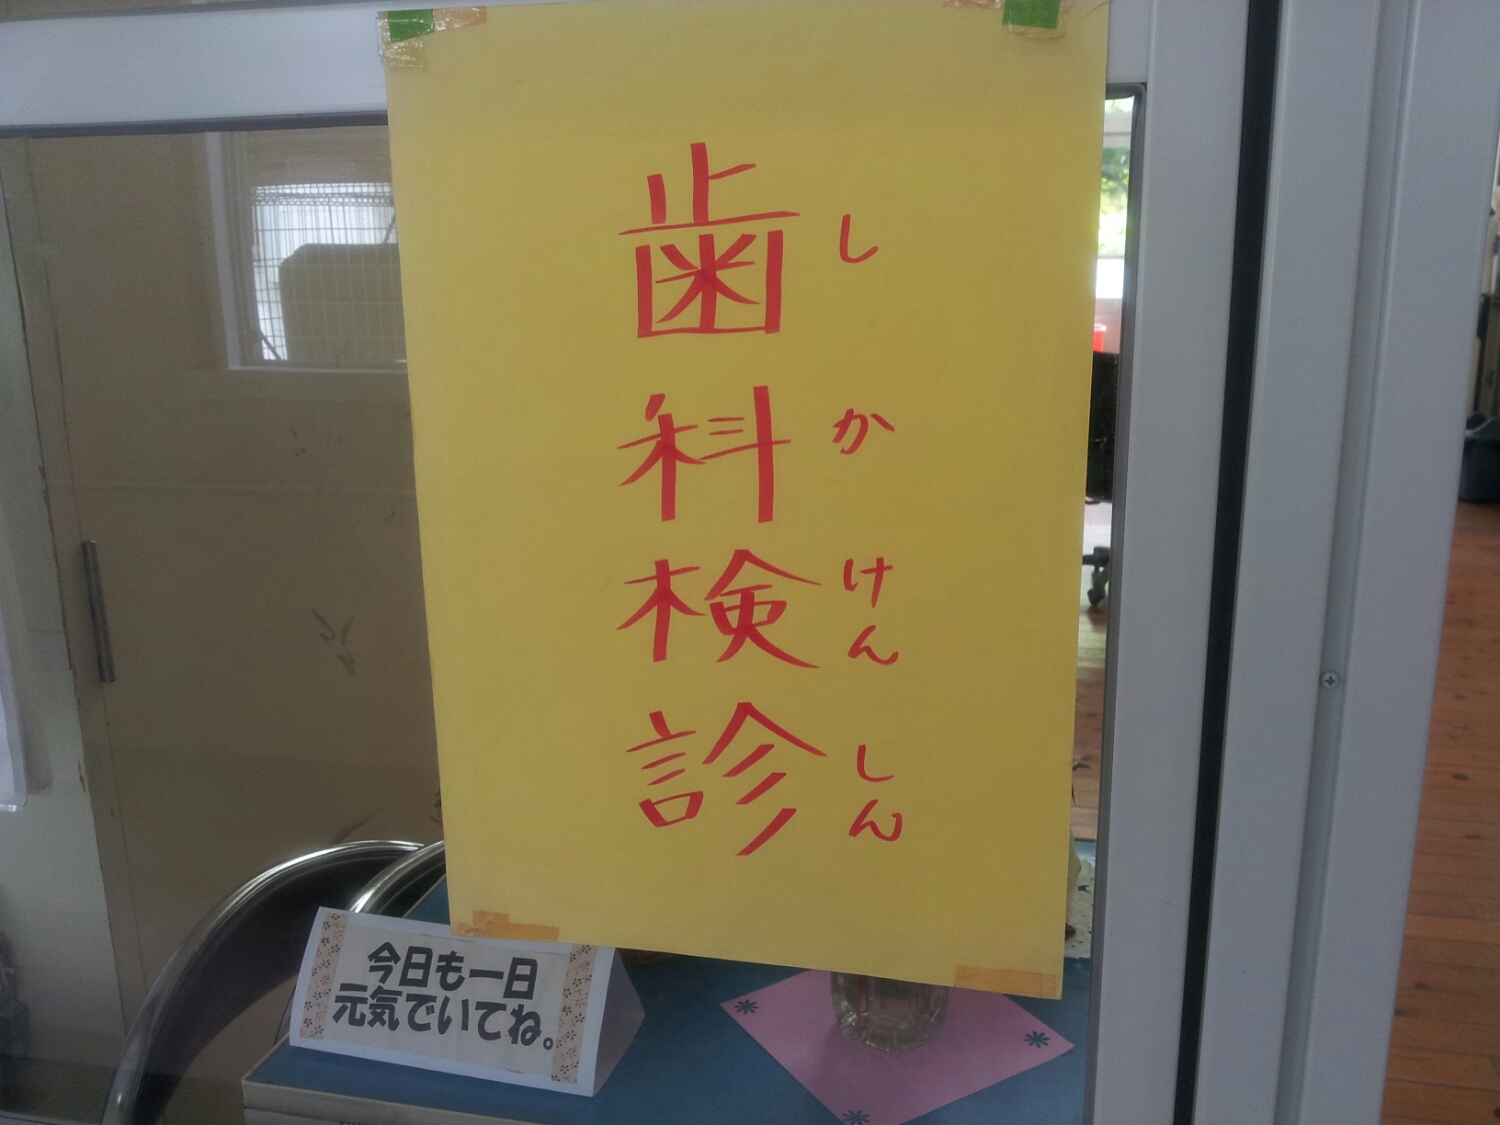 歯科検診
しかけんしん
今日も一日
元気でいてね。